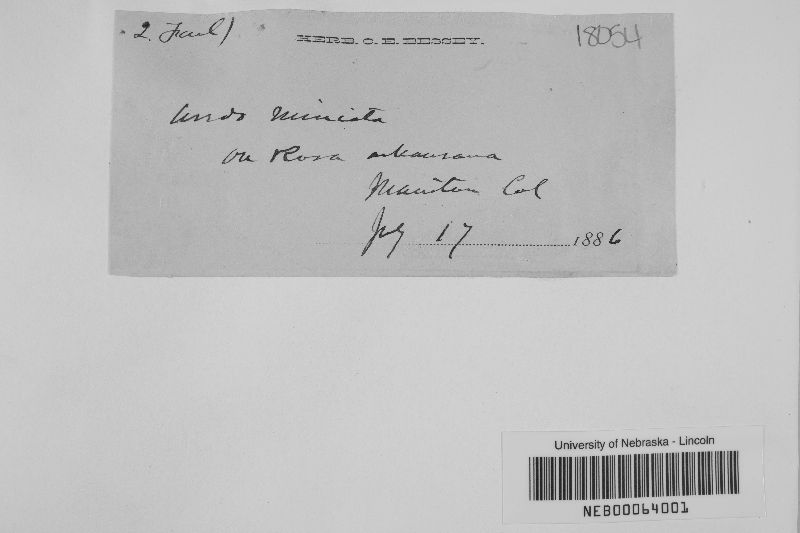 2. 
HERB. C. E. BESSEY.
18054
Uredo miniata
on Rosa arkansana
Manitou Col
July 17 1886
University of Nebraska - Lincoln
NEB00064001